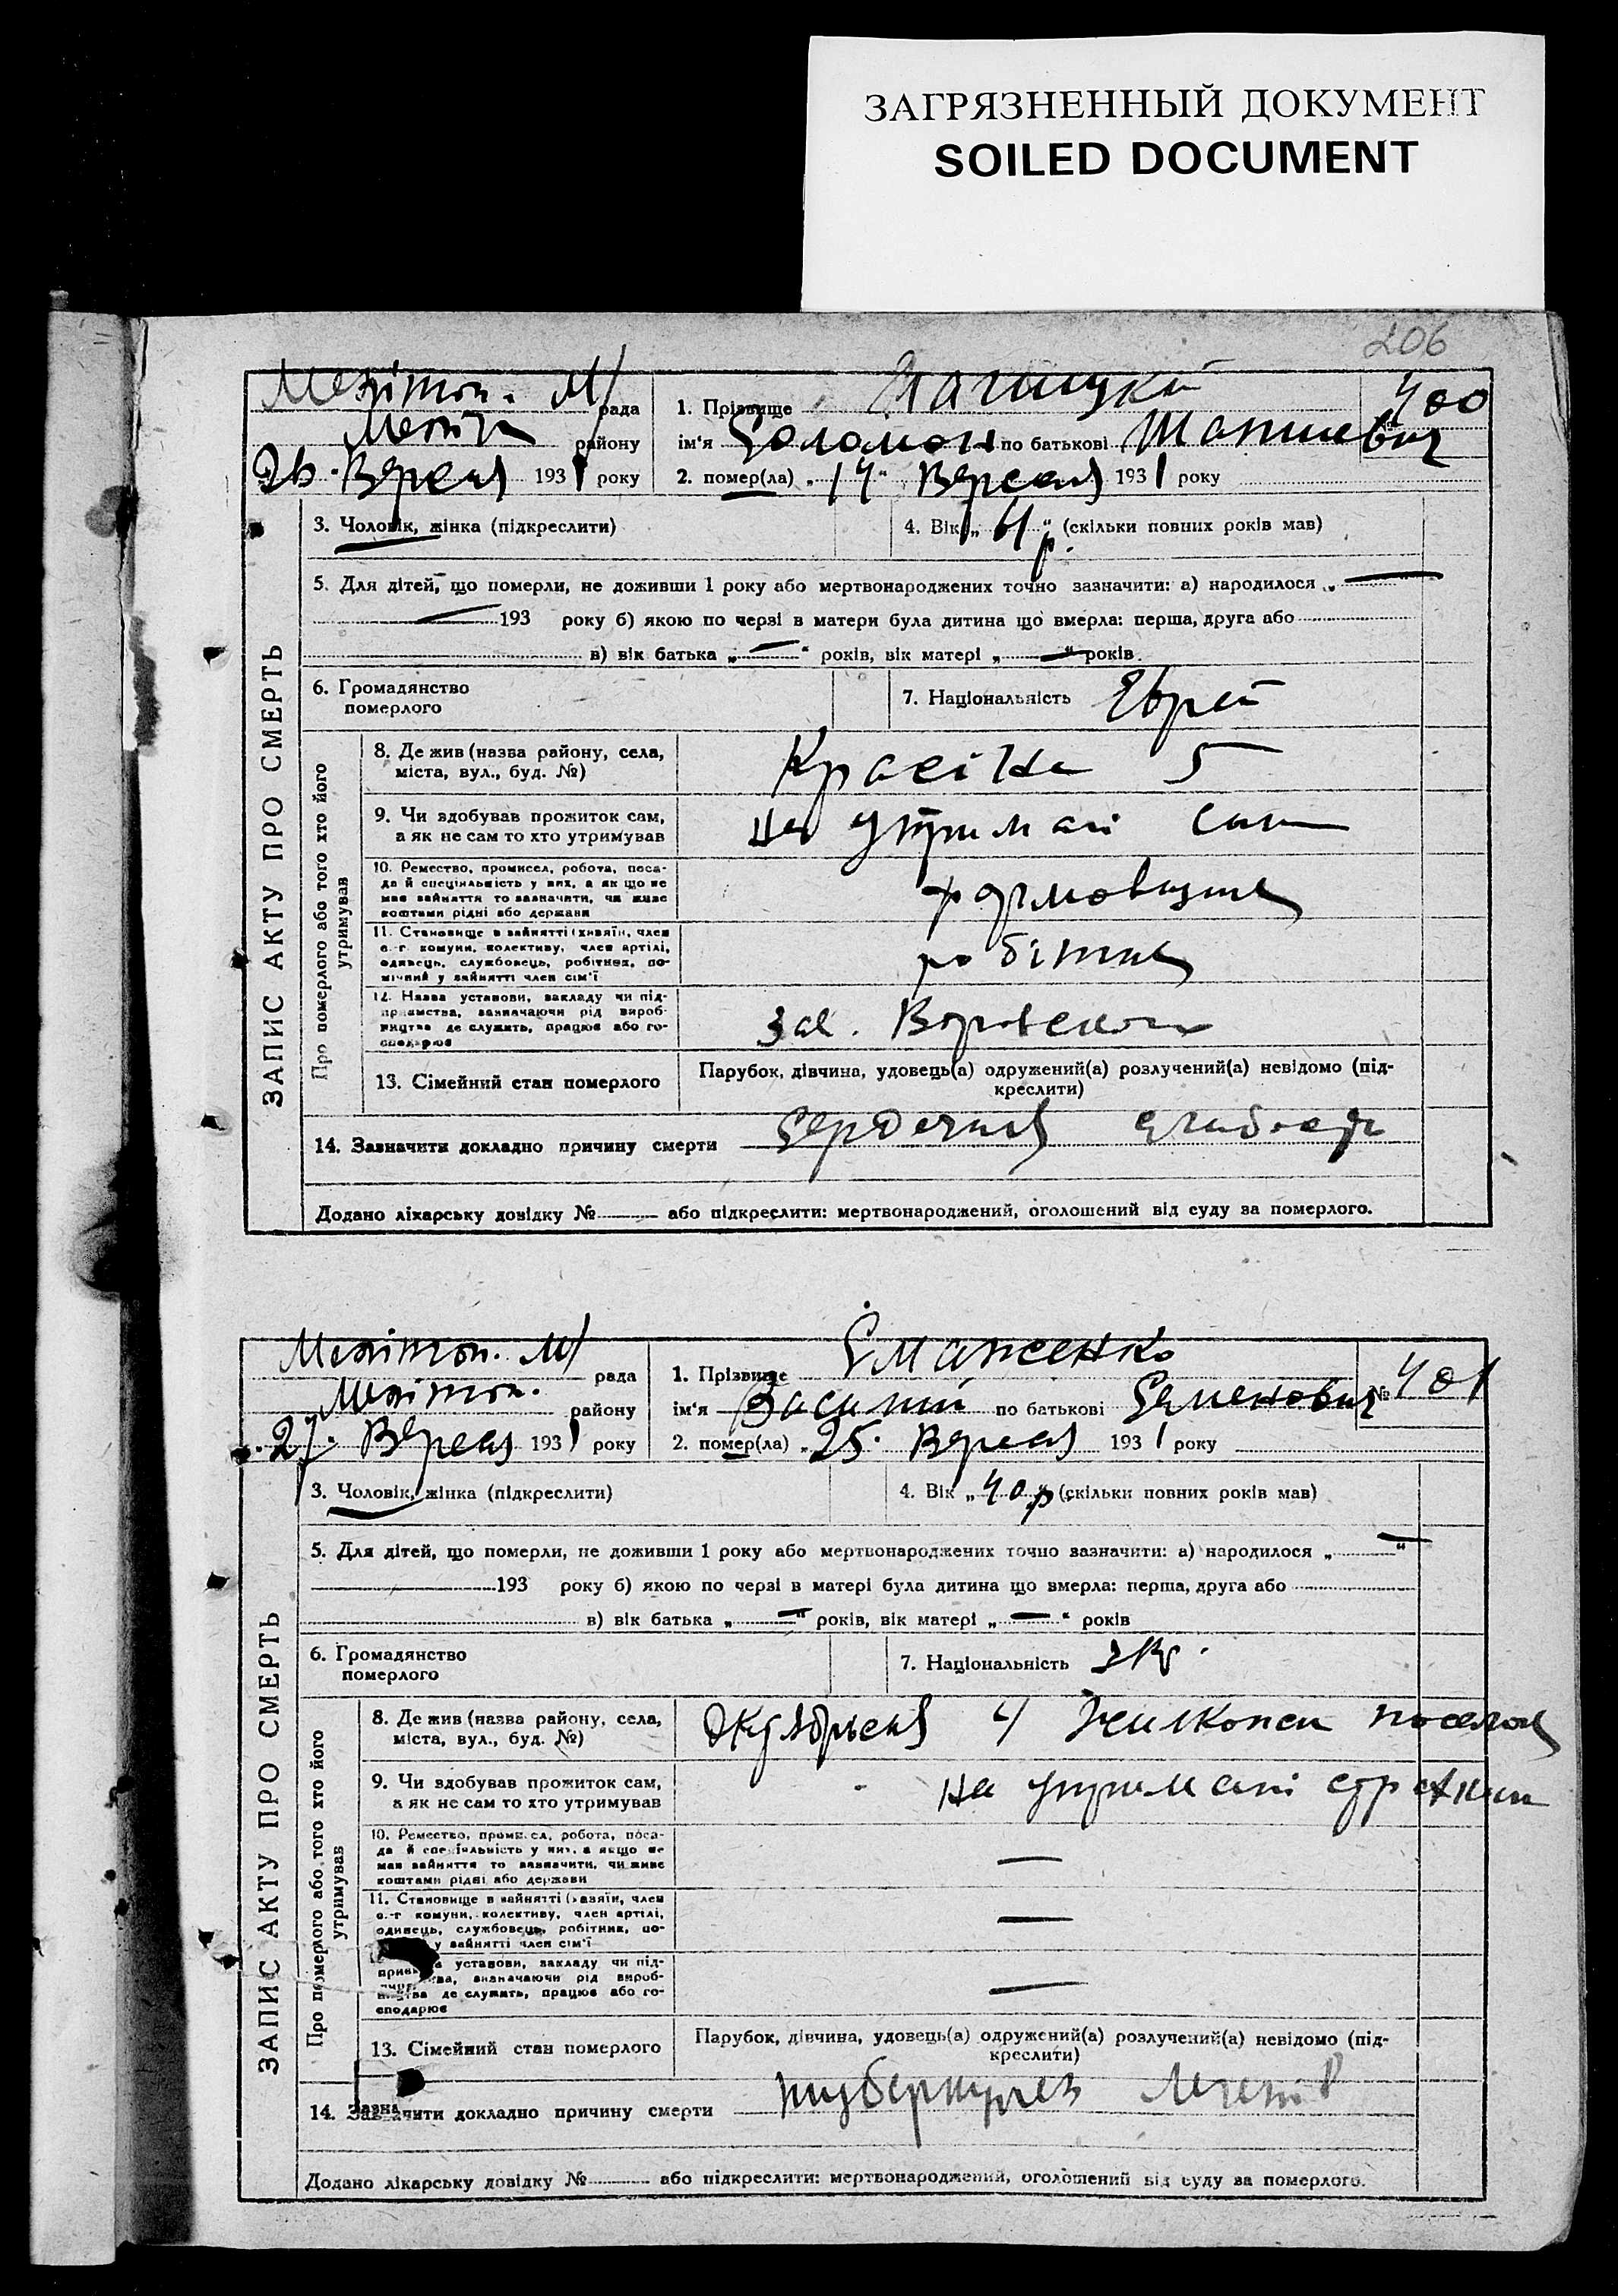 ЗАГРЯЗНЕННЫЙ ДОКУМЕНТ
SOILED DOCUMENT
206
Мелітоп. М/ рада
Меліт району
26. Вересня 1931 року
1. Прізвище
400
ім'я Соломон по батькові
2. помер(ла) „14" Вересня 1931 року
ЗАПИС АКТУ ПРО СМЕРТЬ
3. Чоловік, жінка (підкреслити)
4. Вік „ р." (скільки повних років мав)
5. Для дітей, що померли, не доживши 1 року або мертвонароджених точно зазначити: а) народилося „—"
193 року б) якою по черзі в матери була дитина що вмерла: перша, друга або
в) вік батька „—" років, вік матері „—" років
6. Громадянство
померлого
7. Національність Єврей
Про померлого або того хто його
утримував
8. Де жив (назва району, села,
міста, вул., буд. №)
5
9. Чи здобував прожиток сам,
а як не сам то хто утримував
на утримані сина
10. Ремество, промисел, робота, поса-
да й спеціяльність у них, а як що не
мав зайняття то зазначити, чи живе
коштами рідні або держави
формовщик
11. Становище в зайнятті (хазяїн, член
с.-г комуни, колективу, член артілі,
одинець, службовець, робітник, по-
мічний у зайнятті член сім'ї
робітник
12. Назва установи, закладу чи під-
приємства, зазначаючи рід вироб-
ництва де служить, працює або го-
сподарює
зав. Воровського
13. Сімейний стан померлого
Парубок, дівчина, удовець(а) одружений(а) розлучений(а) невідомо (під-
креслити)
14. Зазначити докладно причину смерти
Сердечна слабость
Додано лікарську довідку № або підкреслити: мертвонароджений, оголошений від суду за померлого.
Мелітоп. М/ рада
Мелітоп. району
27. Вересня 1931 року
1. Прізвище Єманженко
№ 401
ім'я Василій по батькові Семенович
2. помер(ла) „25. Вересня 1931 року
ЗАПИС АКТУ ПРО СМЕРТЬ
3. Чоловік, жінка (підкреслити)
4. Вік „40 р." (скільки повних років мав)
5. Для дітей, що померли, не доживши 1 року або мертвонароджених точно зазначити: а) народилося „—"
193 року б) якою по черзі в матері була дитина що вмерла: перша, друга або
в) вік батька „—" років, вік матері „—" років
6. Громадянство
померлого
7. Національність Укр.
Про померлого або того хто його
утримував
8. Де жив (назва району, села,
міста, вул., буд. №)
Октябрьска 4 поселок
9. Чи здобував прожиток сам,
а як не сам то хто утримував
на утримані
10. Ремество, промисел, робота, поса-
да й спеціяльність у них, а якщо не
мав зайняття то зазначити, чи живе
коштами рідні або держави
—
11. Становище в зайнятті (хазяїн, член
с.-г комуни, колективу, член артілі,
одинець, службовець, робітник, по-
у зайнятті член сім'ї
—
установи, закладу чи під-
зазначаючи рід вироб-
ництва де служить, працює або го-
сподарює
—
13. Сімейний стан померлого
Парубок, дівчина, удовець(а) одружений(а) розлучений(а) невідомо (під-
креслити)
14. Зазначити докладно причину смерти
туберкульоз легенів
Додано лікарську довідку № або підкреслити: мертвонароджений, оголошений від суду за померлого.